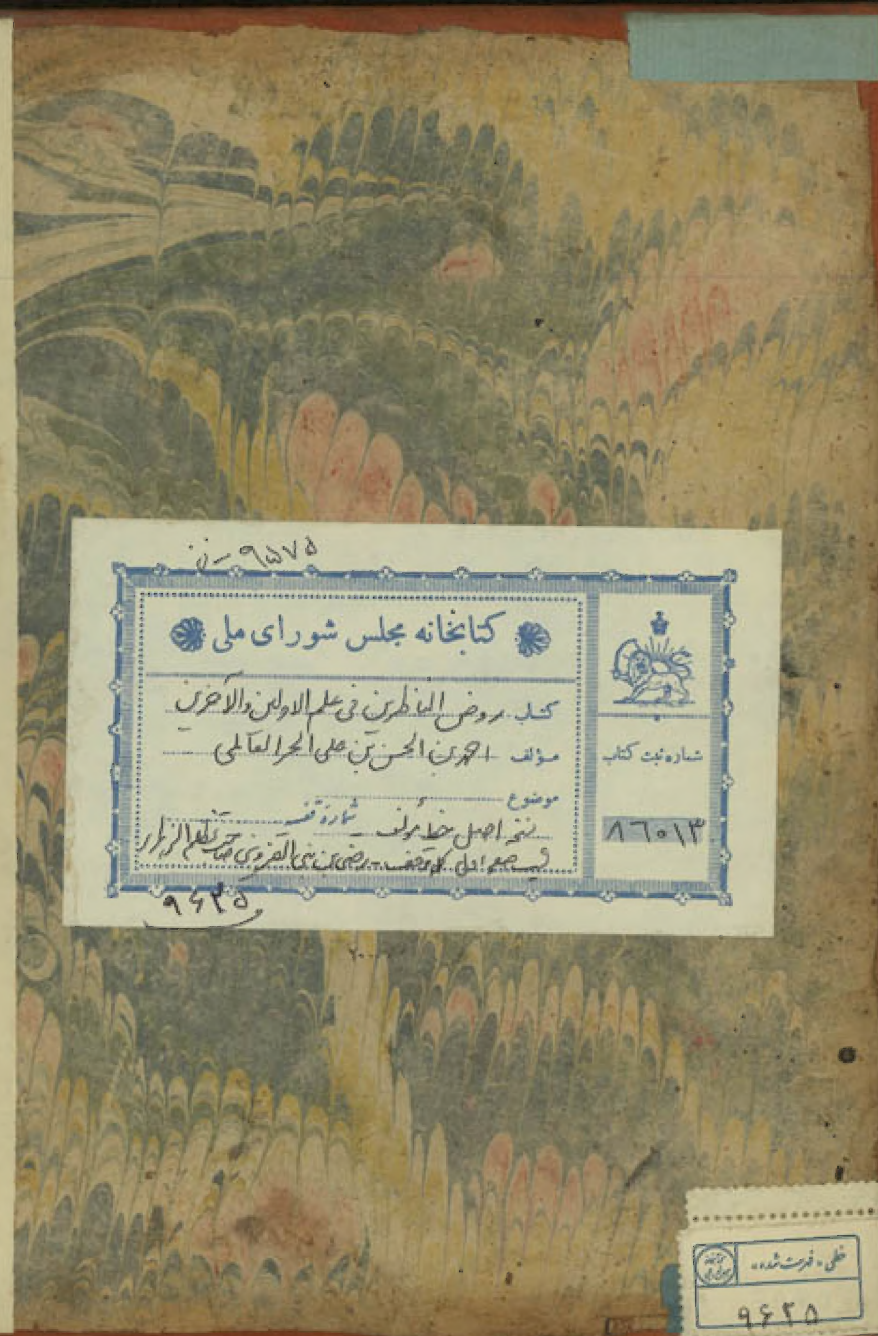 ۹۵۷۵
کتابخانه مجلس شورای ملی
کتاب روض الناظرین فی علم الاولین والآخرین
مؤلف احمد بن الحسن بن علی الحر العاملی
موضوع
شماره قفسه
نسخه اصل خط مؤلف
شماره ثبت کتاب
۸۶۰۱۳
۹۶۳۵
خطی «فهرست شده»
۹۶۳۵